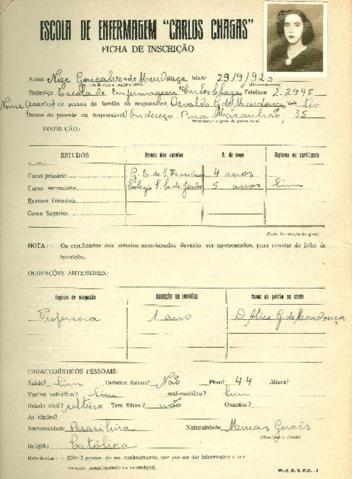 ESCOLA DE ENFERMAGEM "CARLOS CHAGAS"
FICHA DE INSCRIÇÃO
Nome Nize Gonçalves de Mendonça Idade 29/9/923
Endereço Escola de Enfermagem Carlos Chagas Telefone 2.2945
Nome (parentesco) de pessoa de família ou responsável Osvaldo G. de Mendonça tio
(Nome do parente ou responsável) Endereço Rua Maranhão 35
INSTRUÇÃO:
ESTUDOS Nomes das escolas N. de anos Diploma ou certificado
Curso primário G. E. de S. Francisco 4 anos
Curso secundário Colégio S. C. de Jesus 5 anos sim
Exames
Curso Superior
NOTA: - Os certificados dos estudos mencionados deverão ser apresentados, para constar da ficha de
inscrição.
OCUPAÇÕES ANTERIORES:
Espécie de ocupação DURAÇÃO DO EMPRÊGO Nome do patrão ou chefe
Professora 1 ano D. Alice G. de Mendonça
CARACTERÍSTICOS PESSOAIS:
Saúde? Sim Defeitos físicos? Não Pêso? 44 Altura?
Vacina anti-tífica? sim anti-variólica? sim
Estado civil? solteira Tem filhos? não Quantos?
As idades?
Nacionalidade Brasileira Naturalidade Minas Gerais
Religião Católica
Referências: - (Cite 3 pessoas do seu conhecimento, que possam dar informações a seu